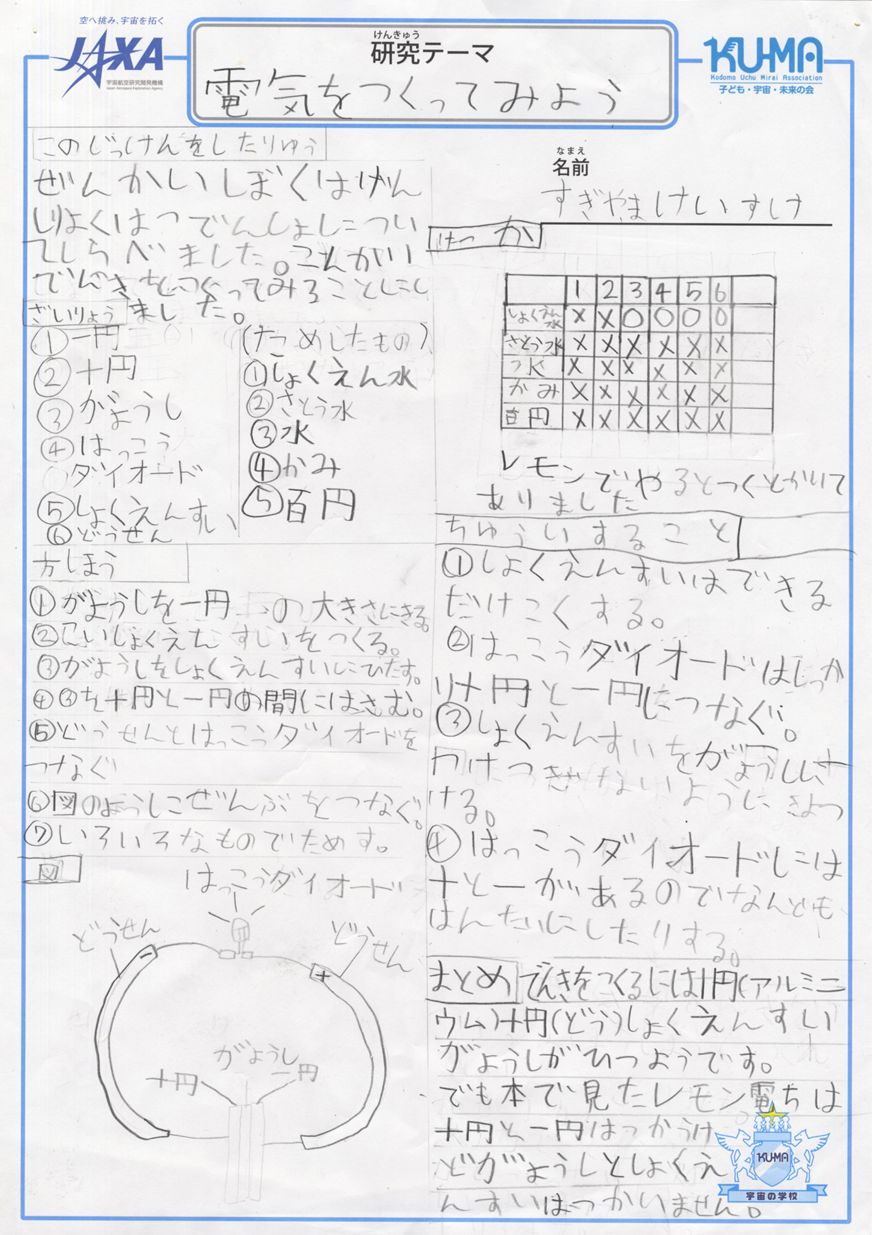 空へ挑み、宇宙を拓く
JAXA
宇宙航空研究開発機構
Japan Aerospace Exploration Agency
けんきゅう
研究テーマ
電気をつくってみよう
KU-MA
Kodomo Uchu Mirai Association
子ども・宇宙・未来の会
なまえ
名前
すぎやまけいすけ
このじっけんをしたりゅう
ぜんかいしぼくはげん
しりょくはつでんしょについ
てしらべました。こんかい
でんきをつくってみることにし
ました。
ざいりょう
①一円
②十円
③がようし
④はっこう
ダイオード
⑤しょくえんすい
⑥どうせん
(ためしたもの)
①しょくえん水
②さとう水
③水
④かみ
⑤百円
方しほう
①がようしを一円の大きさにきる。
②こいしょくえんすいをつくる。
③がようしをしょくえんすいにひたす。
④③を十円と一円の間にはさむ。
⑤どうせんとはっこうダイオードを
つなぐ
⑥図のようにぜんぶをつなぐ。
⑦いろいろなものでためす。
図
はっこうダイオード
どうせん
どうせん
-
+
がようし
十円
一円
けっか
1 2 3 4 5 6
しょくえん水 X X O O O O
さとう水 X X X X X X
水 X X X X X X
かみ X X X X X X
百円 X X X X X X
レモンでやるとつくとかいて
ありました
ちゅういすること
①しょくえんすいはできる
だけこくする。
②はっこうダイオードはしっか
り十円と一円につなぐ。
③しょくえんすいをがようしに
つけすぎないように きよつ
ける。
④はっこうダイオードには
+と-があるのでなんども
はんたいにしたりする。
まとめ
でんきをつくるには1円(アルミニ
ウム)十円(どう)しょくえんすい
がようしがひつようです。
でも本で見たレモン電ちは
十円と一円はつかうけ
どがようしとしょくえ
んすいはつかいません。
KU-MA
宇宙の学校